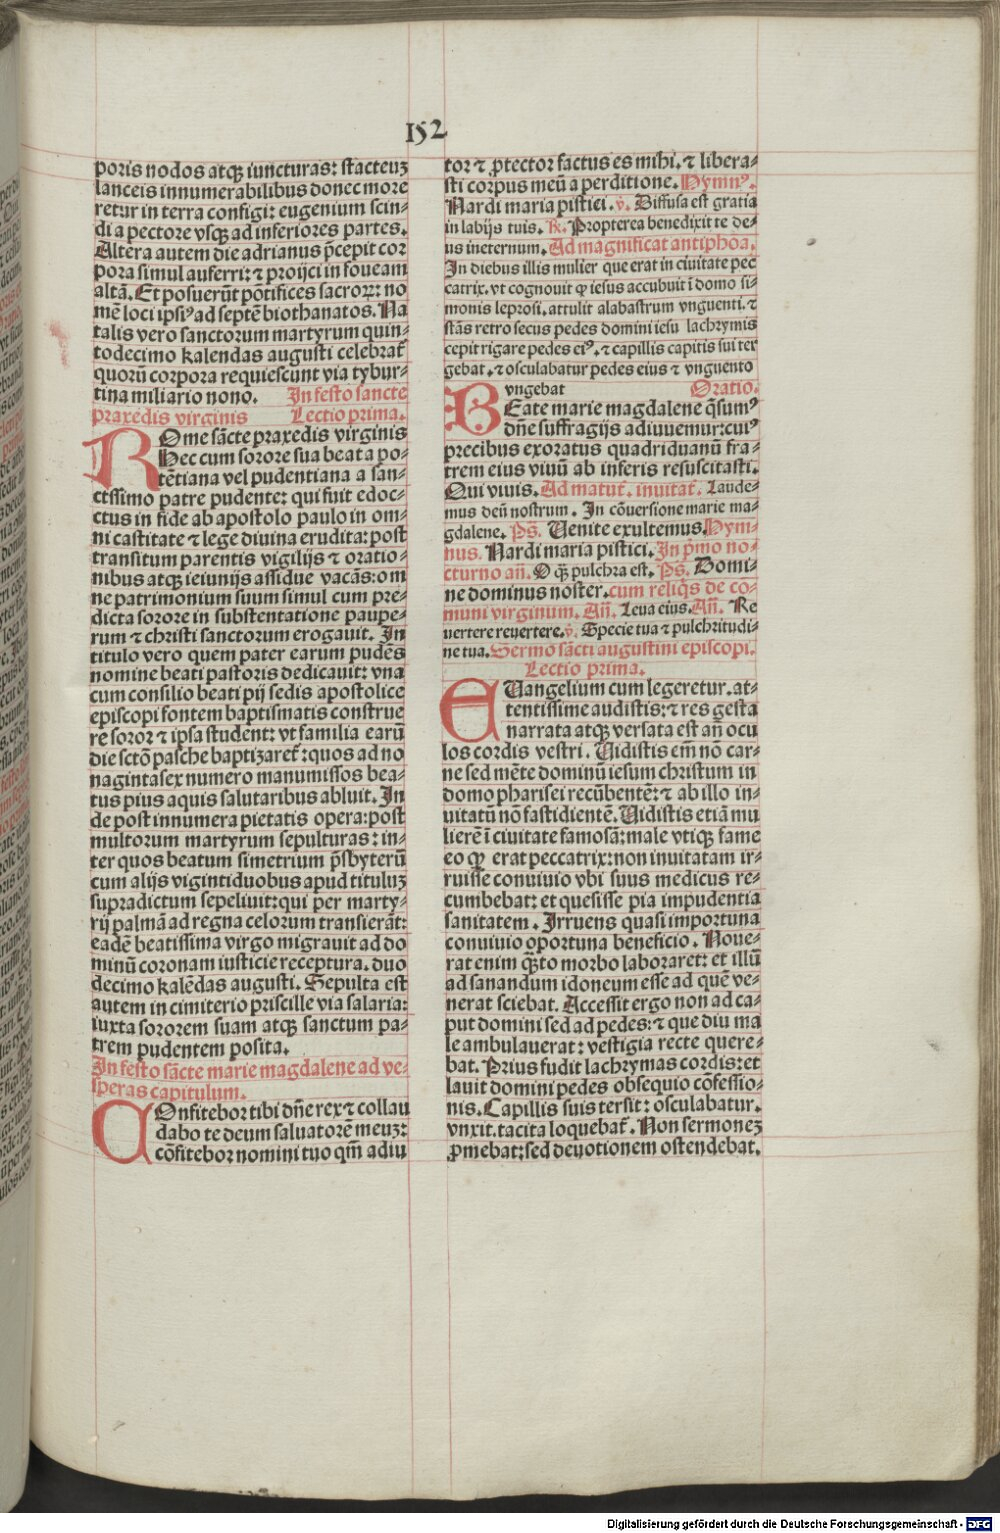 152
poris nodos atqꝫ iuncturas: stacteuꝫ
lanceis innumerabilibus donec more
retur in terra configi: eugenium scin⸗
di a pectore vsqꝫ ad inferiores partes.
Altera autem die adrianus p̄cepit cor
pora simul auferri: ⁊ proijci in foueam
altā. Et posuerūt pōtifices sacroꝝ: no
mē loci ipsiꝰ ad septē biothanatos. Na
talis vero sanctorum martyrum quin⸗
todecimo kalendas augusti celebrat̄
quorū corpora requiescunt via tybur⸗
tina miliario nono. In festo sancte
praxedis virginis Lectio prima.
ROme sācte praxedis virginis
Hec cum sorore sua beata po⸗
tētiana vel pudentiana a san⸗
ctissimo patre pudente: qui fuit edoc⸗
ctus in fide ab apostolo paulo in om⸗
ni castitate ⁊ lege diuina erudita: post
transitum parentis vigilijs ⁊ oratio⸗
nibus atqꝫ ieiunijs assidue vacās: om
ne patrimonium suum simul cum pre⸗
dicta sorore in substentatione paupe⸗
rum ⁊ christi sanctorum erogauit. In
titulo vero quem pater earum pudēs
nomine beati pastoris dedicauit: vna
cum consilio beati pij sedis apostolice
episcopi fontem baptismatis construe
re soror ⁊ ipsa student: vt familia earū
die sctō pasche baptizaret̄: quos ad no
nagintasex numero manumissos bea⸗
tus pius aquis salutaribus abluit. In
de post innumera pietatis opera: post
multorum martyrum sepulturas: in⸗
ter quos beatum simetrium p̄sbyterū
cum alijs vigintiduobus apud tituluꝫ
supradictum sepeliuit: qui per marty⸗
rij palmā ad regna celorum transierāt:
eadē beatissima virgo migrauit ad do
minū coronam iusticie receptura. duo
decimo kalēdas augusti. Sepulta est
autem in cimiterio priscille via salaria:
iuxta sororem suam atqꝫ sanctum pa⸗
trem pudentem posita.
In festo sācte marie magdalene ad ve⸗
speras capitulum.
COnfitebor tibi dn̄e rex ⁊ collau
dabo te deum saluatorē meuꝫ:
cōfitebor nomini tuo qm̄ adiu
tor ⁊ ꝓtector factus es mihi. ⁊ libera⸗
sti corpus meū a perditione. Hymnꝰ.
Nardi maria pistici. ℣. Diffusa est gratia
in labijs tuis. ℟. Propterea benedixit te de⸗
us ineternum. Ad magnificat antiphoa.
In diebus illis mulier que erat in ciuitate pec
catrix. vt cognouit ꝙ iesus accubuit ī domo si⸗
monis leprosi. attulit alabastrum vnguenti. ⁊
stās retro secus pedes domini iesu lachrymis
cepit rigare pedes eiꝰ. ⁊ capillis capitis sui ter
gebat. ⁊ osculabatur pedes eius ⁊ vnguento
vngebat Oratio.
BEate marie magdalene q̄sumꝰ
dn̄e suffragijs adiuuemur: cuiꝰ
precibus exoratus quadriduanū fra⸗
trem eius viuū ab inferis resuscitasti.
Qui viuis. Ad matut̄. inuitat̄. Laude⸗
mus deū nostrum. In cōuersione marie ma⸗
gdalene. Ps̄. Uenite exultemus. Hym⸗
nus. Nardi maria pistici. In p̄mo no⸗
cturno an̄. O qꝫ pulchra est. Ps̄. Domi⸗
ne dominus noster. cum reliq̄s de co⸗
muni virginum. An̄. Leua eius. An̄. Re
uertere reuertere. ℣. Specie tua ⁊ pulchritudi⸗
ne tua. Sermo sācti augustini episcopi.
Lectio prima.
EUangelium cum legeretur. at⸗
tentissime audistis: ⁊ res gesta
narrata atqꝫ versata est an̄ ocu
los cordis vestri. Uidistis em̄ nō car⸗
ne sed mēte dominū iesum christum in
domo pharisei recūbentē: ⁊ ab illo in⸗
uitatū nō fastidientē. Uidistis etiā mu
lierē ī ciuitate famosā: male vtiqꝫ fame
eo ꝙ erat peccatrix: non inuitatam ir⸗
ruisse conuiuio vbi suus medicus re⸗
cumbebat: et quesisse pia impudentia
sanitatem. Irruens quasi importuna
conuiuio oportuna beneficio. Noue⸗
rat enim qꝫto morbo laboraret: et illū
ad sanandum idoneum esse ad quē ve⸗
nerat sciebat. Accessit ergo non ad ca⸗
put domini sed ad pedes: ⁊ que diu ma
le ambulauerat: vestigia recte quere⸗
bat. Prius fudit lachrymas cordis: et
lauit domini pedes obsequio cōfessio⸗
nis. Capillis suis tersit: osculabatur.
vnxit. tacita loquebat̄. Non sermoneꝫ
ꝓmebat: sed deuotionem ostendebat.
Digitalisierung gefördert durch die Deutsche Forschungsgemeinschaft - DFG